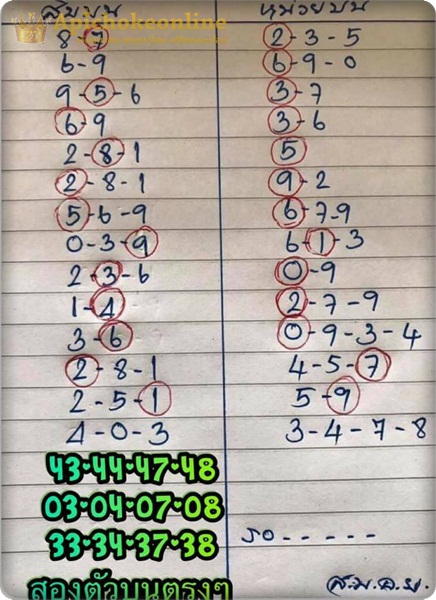 Apichokeonline
สิบบน
หน่วยบน
8 7
2-3-5
6-9
6-9-0
9-5-6
3-7
6-9
3-6
2-8-1
5
2-8-1
9-2
5-6-9
6-7-9
0-3-9
6-1-3
2-3-6
0-9
1-4
2-7-9
3-6
0-9-3-4
2-8-1
4-5-7
2-5-1
5-9
4-0-3
3-4-7-8
43•44•47•48
03•04•07•08
33•34•37•38
รอ-----
สองตัวบนตรงๆ
ส.ม.ด.ม.